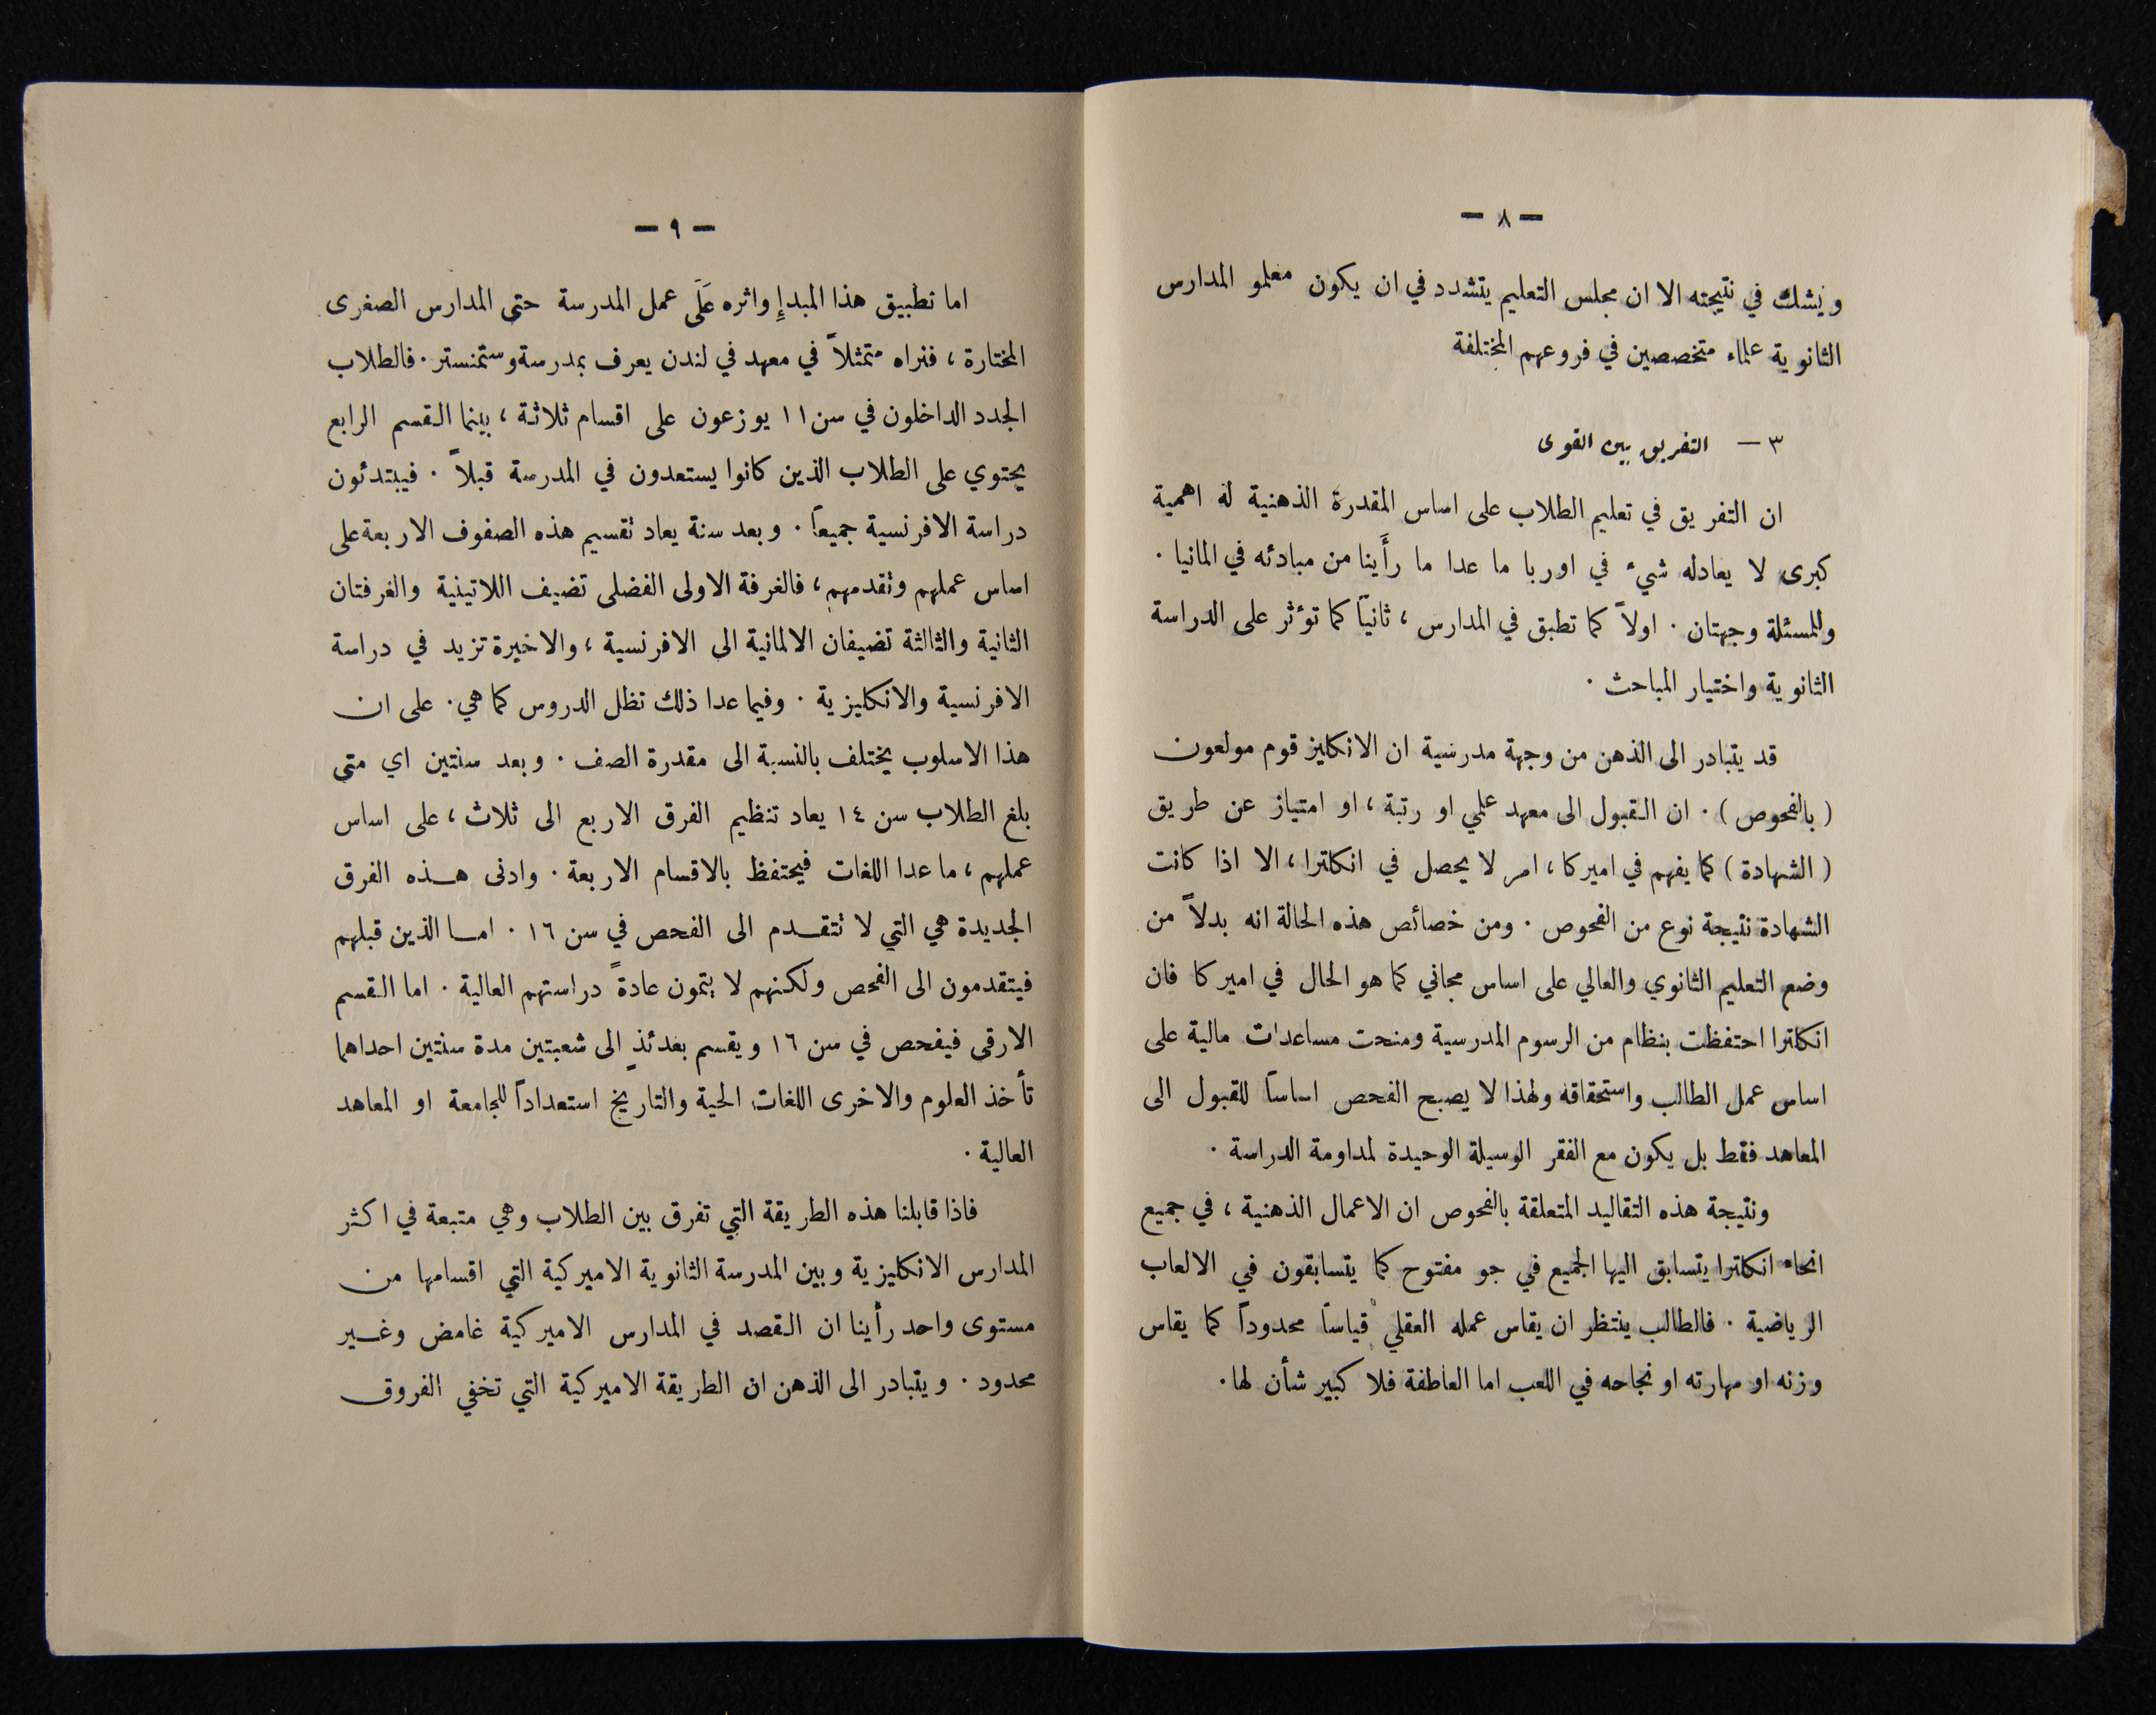 — ٨ —
ويشك في نتيجته الا ان مجلس التعليم يتشدد في ان يكون معلمو المدارس
الثانوية علماء متخصصين في فروعهم المختلفة
٣ — التفريق بين القوى
ان التفريق في تعليم الطلاب على اساس المقدرة الذهنية له اهمية
كبرى لا يعادله شيء في اوربا ما عدا ما رأَينا من مبادئه في المانيا .
وللمسئلة وجهتان . اولاً كما تطبق في المدارس ، ثانياً كما تؤثر على الدراسة
الثانوية واختيار المباحث .
قد يتبادر الى الذهن من وجهة مدرسية ان الانكليز قوم مولعون
( بالفحوص ) . ان القبول الى معهد علمي او رتبة ، او امتياز عن طريق
( الشهادة ) كما يفهم في اميركا ، امر لا يحصل في انكلترا ، الا اذا كانت
الشهادة نتيجة نوع من الفحوص . ومن خصائص هذه الحالة انه بدلاً من
وضع التعليم الثانوي والعالي على اساس مجاني كما هو الحال في اميركا فان
انكلترا احتفظت بنظام من الرسوم المدرسية ومنحت مساعدات مالية على
اساس عمل الطالب واستحقاقه ولهذا لا يصبح الفحص اساساً للقبول الى
المعاهد فقط بل يكون مع الفقر الوسيلة الوحيدة لمداومة الدراسة .
ونتيجة هذه التقاليد المتعلقة بالفحوص ان الاعمال الذهنية ، في جميع
انحاء انكلترا يتسابق اليها الجميع في جو مفتوح كما يتسابقون في الالعاب
الرياضية . فالطالب ينتظر ان يقاس عمله العقلي قياساً محدوداً كما يقاس
وزنه او مهارته او نجاحه في اللعب اما العاطفة فلا كبير شأن لها .
— ٩ —
اما تطبيق هذا المبدإِ واثره عَلَى عمل المدرسة حتى المدارس الصغرى
المختارة ، فنراه متمثلاً في معهد في لندن يعرف بمدرسة وستمنستر . فالطلاب
الجدد الداخلون في سن ١١ يوزعون على اقسام ثلاثة ، بينما القسم الرابع
يحتوي على الطلاب الذين كانوا يستعدون في المدرسة قبلاً . فيبتدئون
دراسة الافرنسية جميعاً . وبعد سنة يعاد تقسيم هذه الصفوف الاربعة على
اساس عملهم وتقدمهم ، فالغرفة الاولى الفضلى تضيف اللاتينية والغرفتان
الثانية والثالثة تضيفان الالمانية الى الافرنسية ، والاخيرة تزيد في دراسة
الافرنسية والانكليزية . وفيما عدا ذلك تظل الدروس كما هي . على ان
هذا الاسلوب يختلف بالنسبة الى مقدرة الصف . وبعد سنتين اي متى
بلغ الطلاب سن ١٤ يعاد تنظيم الفرق الاربع الى ثلاث ، على اساس
عملهم ، ما عدا اللغات فيحتفظ بالاقسام الاربعة . وادنى هذه الفرق
الجديدة هي التي لا تتقدم الى الفحص في سن ١٦ . اما الذين قبلهم
فيتقدمون الى الفحص ولكنهم لا يتمون عادةً دراستهم العالية . اما القسم
الارقى فيفحص في سن ١٦ ويقسم بعدئذٍ الى شعبتين مدة سنتين احداهما
تأخذ العلوم والاخرى اللغات الحية والتاريخ استعداداً للجامعة او المعاهد
العالية .
فاذا قابلنا هذه الطريقة التي تفرق بين الطلاب وهي متبعة في اكثر
المدارس الانكليزية وبين المدرسة الثانوية الاميركية التي اقسامها من
مستوى واحد رأينا ان القصد في المدارس الاميركية غامض وغير
محدود . ويتبادر الى الذهن ان الطريقة الاميركية التي تخفي الفروق